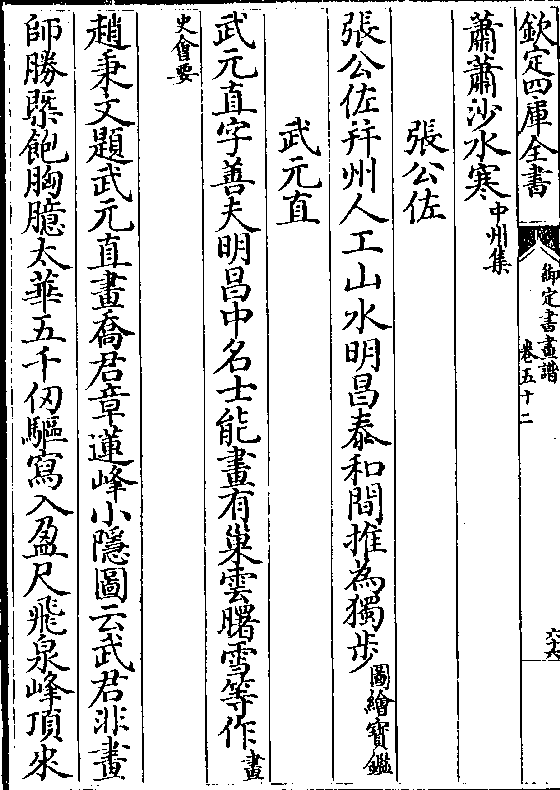 欽定四庫全書
御定書畫譜
卷五十二
六十八
蕭蕭沙水寒中州集
張公佐
張公佐并州人工山水明昌泰和間推為獨步圖繪寶鑑
武元直
武元直字善夫明昌中名士能畫有巢雲曙雪等作畫
史會要
趙秉文題武元直畫喬君章蓮峰小隱圖云武君非畫
師勝槩飽胸臆太華五千仞驅寫入盈尺飛泉峰頂來